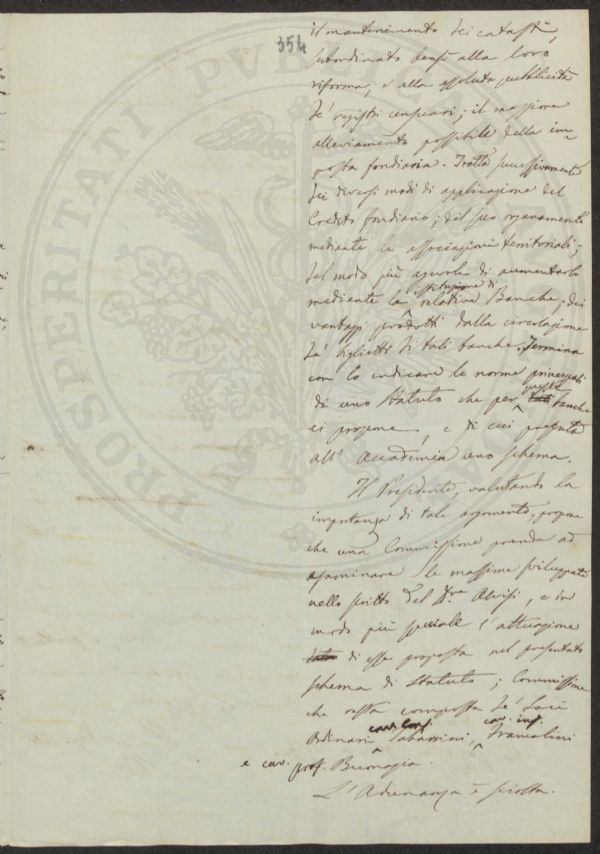 354
il mantenimento dei catasti,
subordinato bensì alla loro
riforma, e alla assoluta pubblicità
de' registri censuari; il massimo
alleviamento possibile della im-
posta fondiaria. Tratta successivamente
dei diversi modi di applicazione del
Credito fondiario; del suo organamento
mediante le associazioni territoriali;
del modo più agevole di aumentarlo
istituzione di
mediante la relative Banche; dei
vantaggi prodotti dalla circolazione
de' biglietti di tali banche. Termina
con lo indicare le norme principali
queste
di uno Statuto che per tali banche
ei propone, e di cui presenta
all' Accademia uno schema.
Il Presidente, valutando la
importanza di tale argomento, propone
che una Commissione prenda ad
esaminare le massime sviluppate
nello scritto del Dre Alvisi, e in
modo più speciale l'attuazione
di esse proposta nel presentato
schema di Statuto; Commissione
che resta composta de' Soci
cav. Conf. cav. inf.
Ordinari Tabarrini, Francolini
e cav. prof. Buonazia.
L'Adunanza è sciolta.
PROSPERITATI PUBLICAE